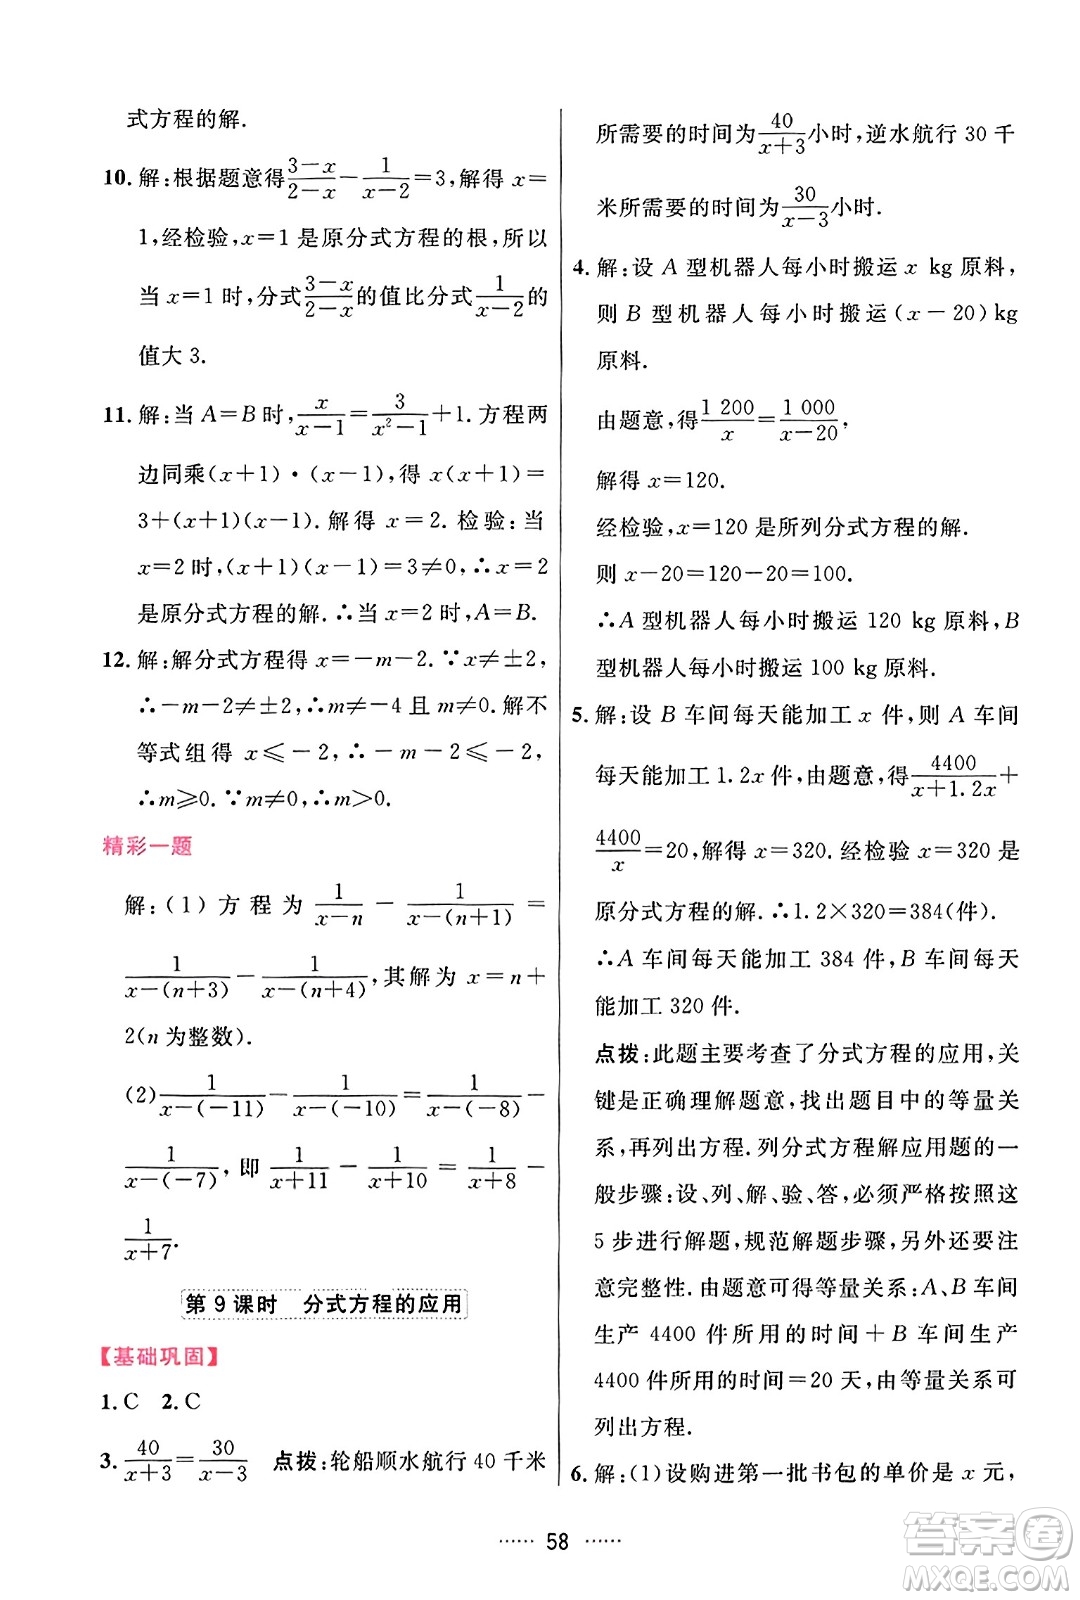 式方程的解.
10. 解:根据题意得\frac{3-x}{2-x}-\frac{1}{x-2}=3,解得 x=
1,经检验,x=1 是原分式方程的根,所以
当 x=1 时,分式\frac{3-x}{2-x}的值比分式\frac{1}{x-2}的
值大 3.
11. 解:当 A=B 时,\frac{x}{x-1}=\frac{3}{x²-1}+1. 方程两
边同乘(x+1)·(x-1),得 x(x+1)=
3+(x+1)(x-1). 解得 x=2. 检验:当
x=2 时,(x+1)(x-1)=3≠0,∴x=2
是原分式方程的解. ∴当 x=2 时,A=B.
12. 解:解分式方程得 x=-m-2. ∵x≠±2,
∴-m-2≠±2,∴m≠-4 且 m≠0. 解不
等式组得 x≤-2,∴-m-2≤-2,
∴m≥0. ∵m≠0,∴m>0.
精彩一题
解:(1)方程为\frac{1}{x-n}-\frac{1}{x-(n+1)}=
\frac{1}{x-(n+3)}-\frac{1}{x-(n+4)},其解为 x=n+
2(n 为整数).
(2)\frac{1}{x-(-11)}-\frac{1}{x-(-10)}=\frac{1}{x-(-8)}-
\frac{1}{x-(-7)},即\frac{1}{x+11}-\frac{1}{x+10}=\frac{1}{x+8}-
\frac{1}{x+7}.
第 9 课时 分式方程的应用
【基础巩固】
1. C 2. C
3. \frac{40}{x+3}=\frac{30}{x-3} 点拨:轮船顺水航行 40 千米
所需要的时间为\frac{40}{x+3}小时,逆水航行 30 千
米所需要的时间为\frac{30}{x-3}小时.
4. 解:设 A 型机器人每小时搬运 x kg 原料,
则 B 型机器人每小时搬运(x-20)kg
原料.
由题意,得\frac{1 200}{x}=\frac{1 000}{x-20},
解得 x=120.
经检验,x=120 是所列分式方程的解.
则 x-20=120-20=100.
∴A 型机器人每小时搬运 120 kg 原料,B
型机器人每小时搬运 100 kg 原料.
5. 解:设 B 车间每天能加工 x 件,则 A 车间
每天能加工 1.2x 件,由题意,得\frac{4400}{x+1.2x}+
\frac{4400}{x}=20,解得 x=320. 经检验 x=320 是
原分式方程的解. ∴1.2×320=384(件).
∴A 车间每天能加工 384 件,B 车间每天
能加工 320 件.
点拨:此题主要考查了分式方程的应用,关
键是正确理解题意,找出题目中的等量关
系,再列出方程. 列分式方程解应用题的一
般步骤:设、列、解、验、答,必须严格按照这
5 步进行解题,规范解题步骤,另外还要注
意完整性. 由题意可得等量关系:A、B 车间
生产 4400 件所用的时间+B 车间生产
4400 件所用的时间=20 天,由等量关系可
列出方程.
6. 解:(1)设购进第一批书包的单价是 x 元,
…… 58 ……
答案卷
MXQE.COM